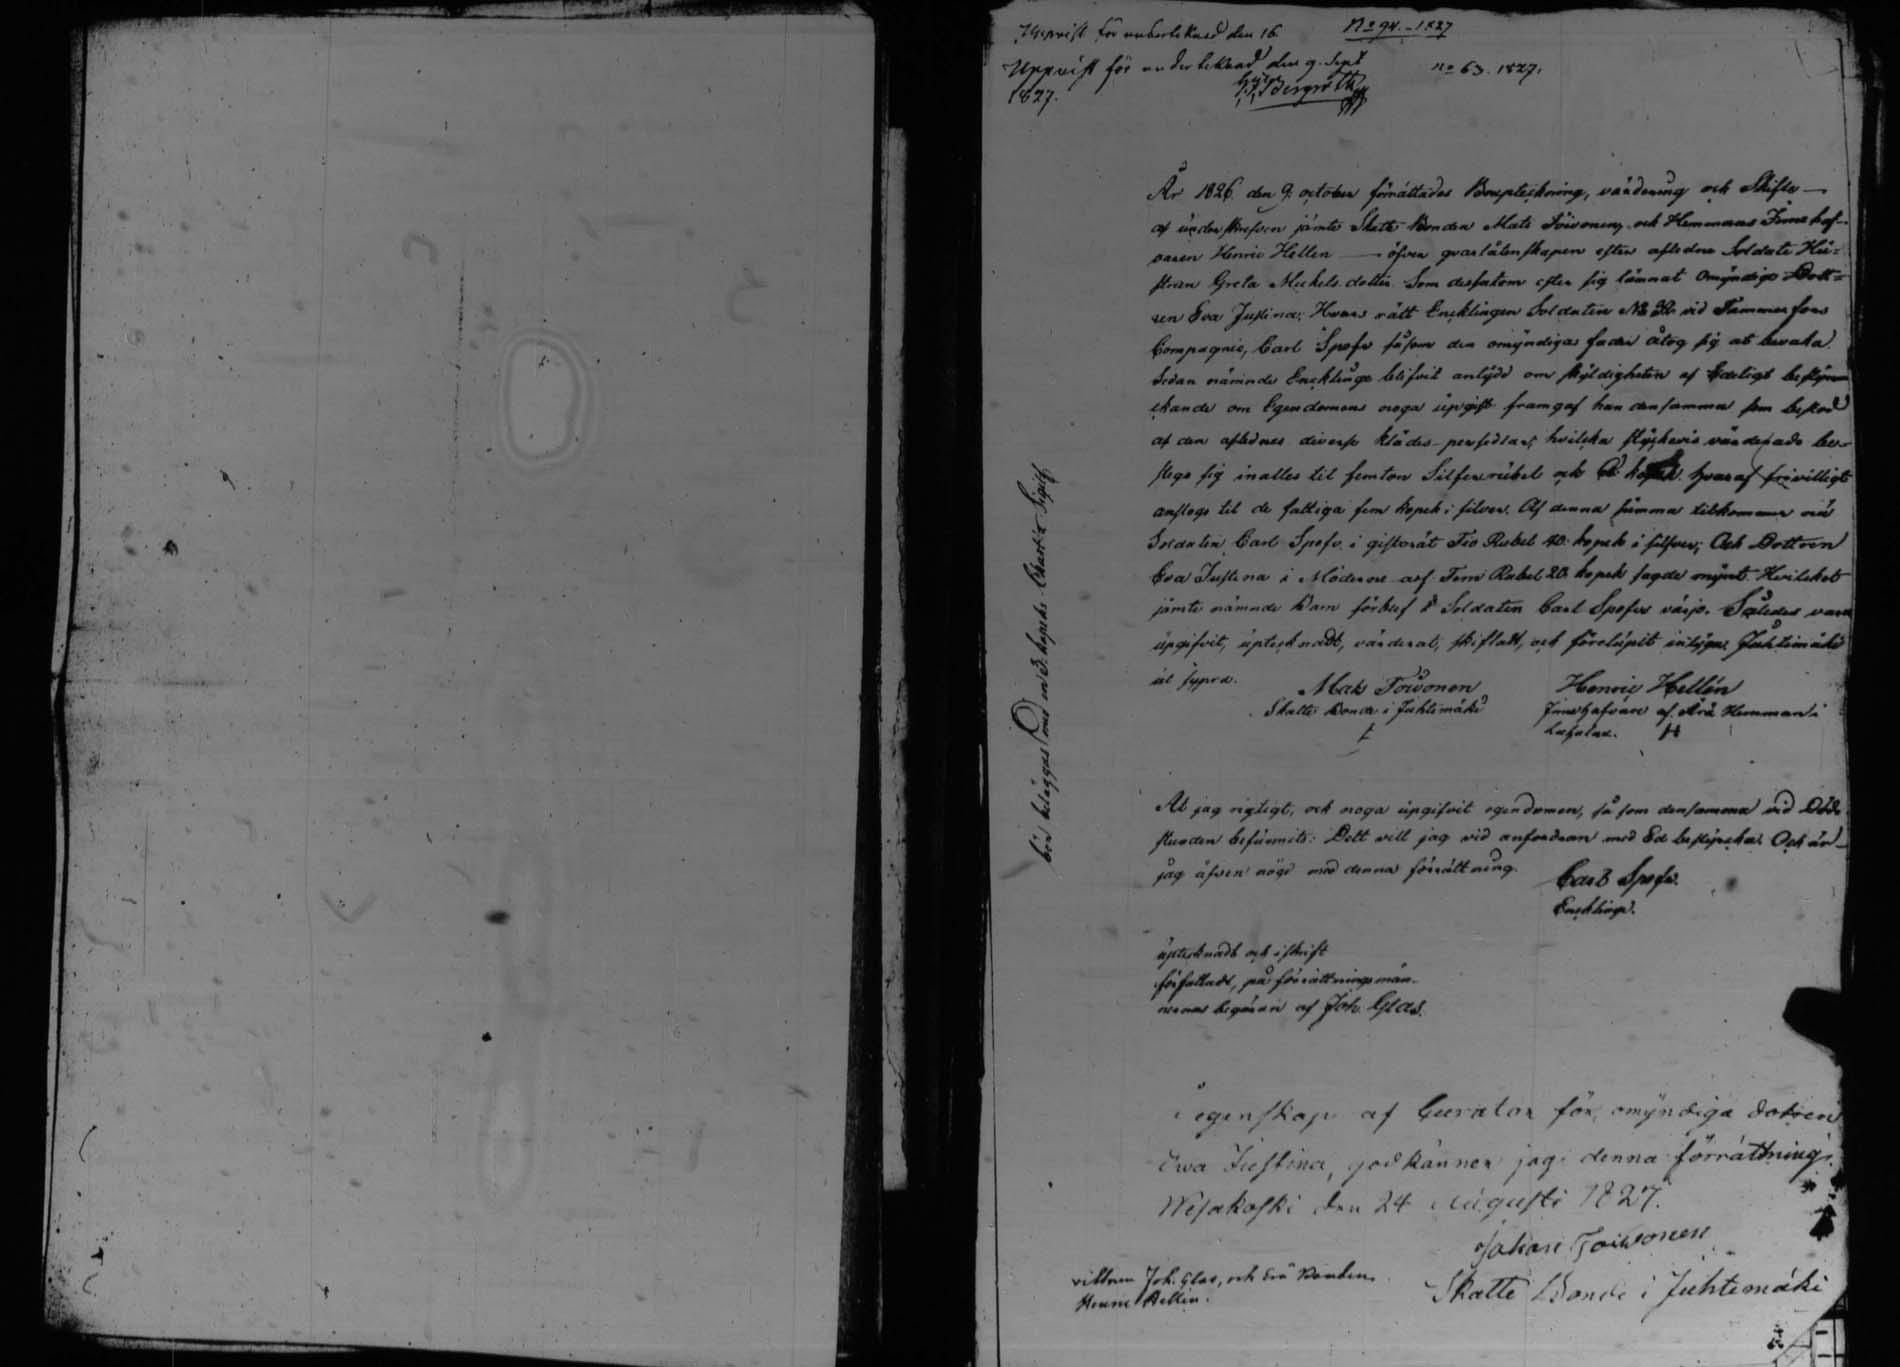 Uppvist för undertecknad den 16
No 94. - 1827
Uppvist för undertecknad den 9. Sept
no 63. 1827.
1827.
År 1826 den 9. october förrättades Bouptekning, värdering och Skifte
af underskrefven jämte Skatte Bonden Mats Toivonen, och Hemmans Innehaf-
varen Henric Hellen öfver qvarlåtenskapen efter afledne Soldats Hu-
strun Greta Michels dotter Som dessutom efter sig lämnat omyndiga Dott-
ren Eva Justina; Hvars rätt Encklingen Soldaten No 32 vid Tammerfors
Compagnie, Carl Spofv såsom den omyndigas fader åtog sig at bevaka
Sedan nämnde Enckling blifvit antydd om skyldigheten af Edeligt bestyr-
ckande om Egendomens noga upgift framgaf han densamma som bestod
af den aflednes diverse klädes-persedlar; hvilcka styckevis värderade be-
stego sig inalles til femton Silfver rubel och kopek hvaraf frivilligt
anslogs til de fattiga fem kopek i silver. Af denna summa tilkommer
Soldaten Carl Spofv i giftorät Tio Rubel 40. kopek i silfver; Och Dottren
Eva Justina i Möderne arf Fem Rubel 20. kopek sagde mynt Hvilcket
jämte nämnde Barn förblef i Soldaten Carl Spofvs värjo. Således vara
upgifvit, uptecknadt, värderat, skiftadt, och förelupit intygas Juhtimäki
ut supra.
Mats Toivonen
Henric Hellén
Skatte Bonde i Juhtimäki
Innehafvare af Arä Hemman i
H
At jag rigtigt, och noga upgifvit egendomen, så som densamma vid Döds
stunden befunnits: Dett vill jag vid anfordran med Ed bestyrcka. Och är
jag äfven nögd med denna förrättning.
Carl Spofv.
Enckling.
uptecknadt och i skrift
författadt, på förrättningsmän-
nernas begäran af Joh. Glas.
bör beläggas med en 3. kopeks Charta Sigill
i egenskap af Curator för omyndiga dotren
Ewa Justina, godkänner jag denna förrättning.
Wesakoski den 24 Augusti 1827.
Johan Toiwonen
Skatte Bonde i Juhtimäki
vittna Joh. Glas, och Bonden
Henric Hellen.